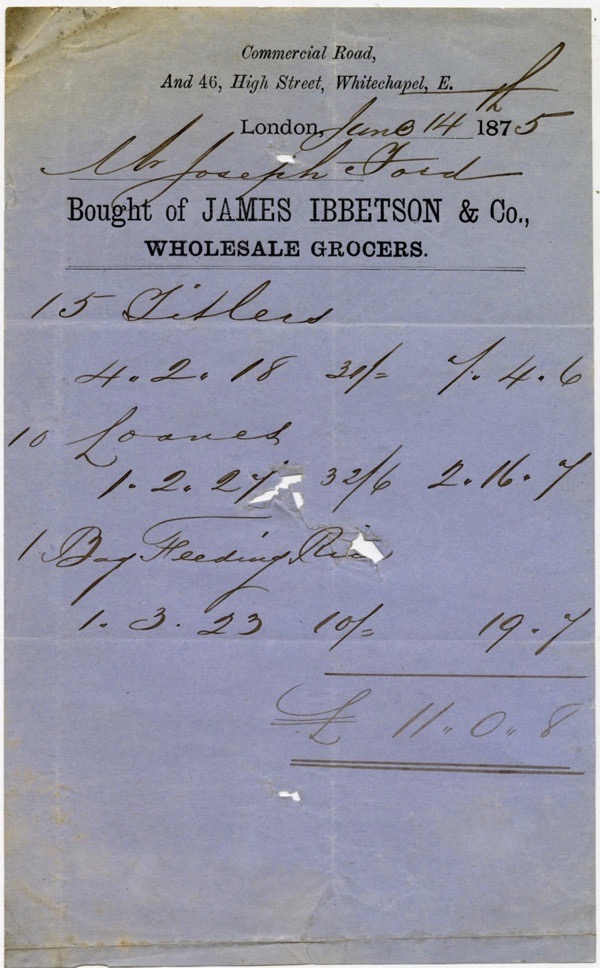 Commercial Road,
And 46, High Street, Whitechapel, E.
London, June 14th 1875
Mr Joseph Ford
Bought of JAMES IBBETSON & Co.,
WHOLESALE GROCERS.
15 Titlers
4 " 2 " 18 31/= 7 " 4 " 6
10 Loaves
1 " 2 " 27 32/6 2 " 16 " 7
1 Bag Feeding Rice
1 . 3 . 23 10/= 19 " 7
£ 11 " 0 " 8